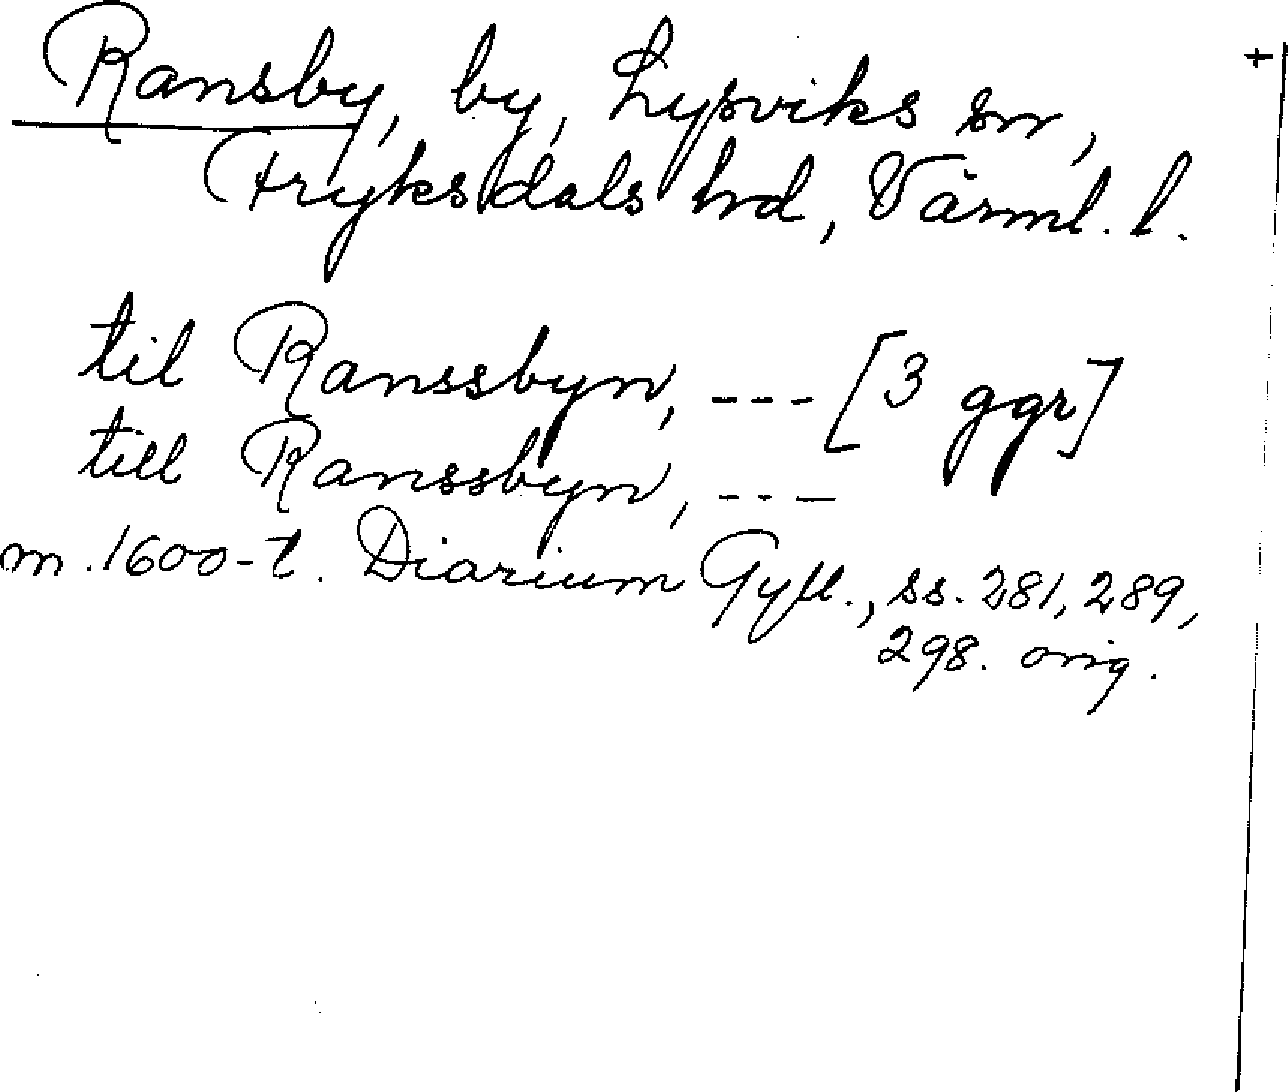 Ransby, by, Lysviks sn, +
Fryksdals hd, Värml. l.
til Ranssbyn, --- [3 ggr]
till Ranssbyn, ---
m. 1600-t. Diarium Gyll., ss. 281, 289,
298. orig.